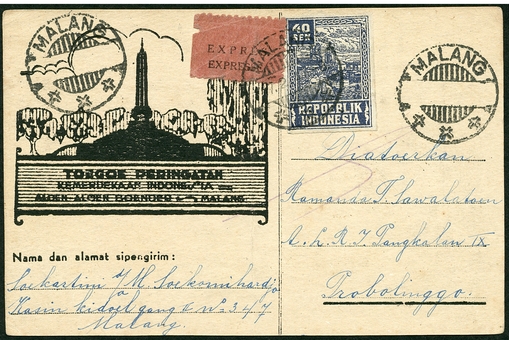 MALANG
TOEGOE PERINGATAN
KEMERDEKAAN INDONESIA
ALOEN-ALOEN BOENDER MALANG
EXPRES
EXPRES
MALANG
40
SEN
REPOEBLIK
INDONESIA
MALANG
Diatoerkan
Ramanda T. Sawalatoen
A. L. R. I Pangkalan IX
Probolinggo.
Nama dan alamat sipengirim :
Soekartini M. Soekomihardjo
Kasin kidoel gang No 347
Malang.